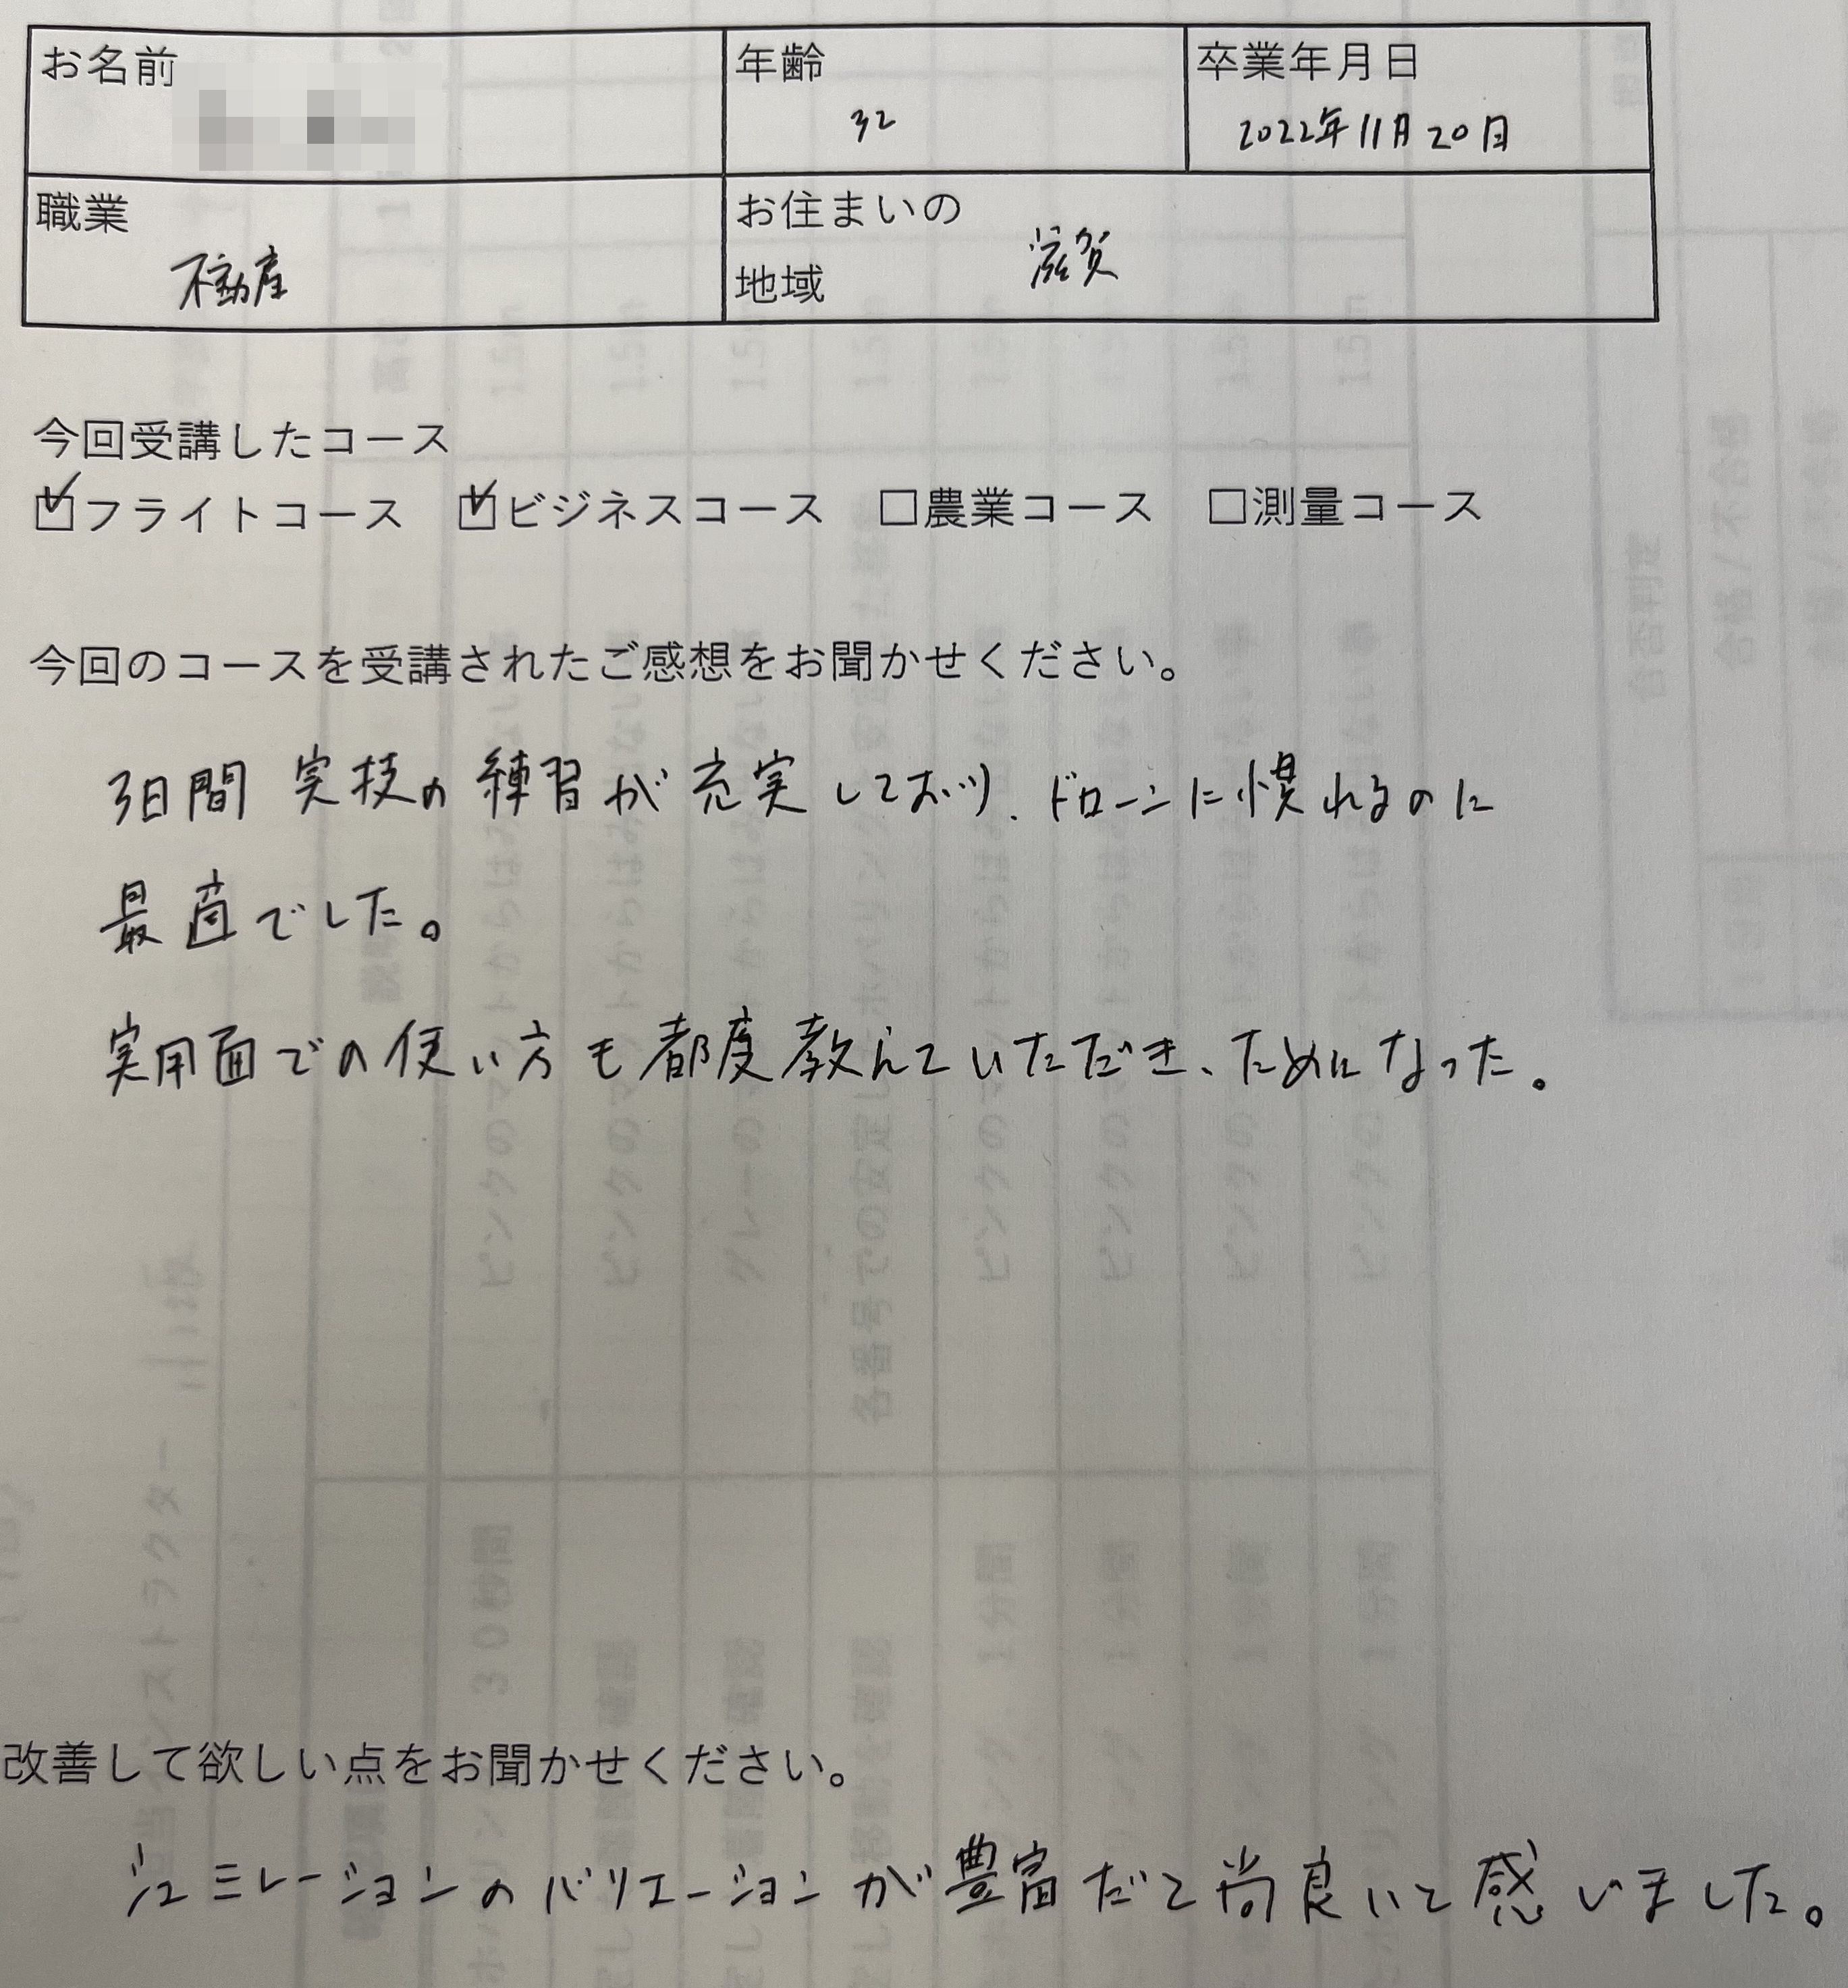 お名前
年齢
32
卒業年月日
2022年11月20日
職業
不動産
お住まいの
地域
滋賀
今回受講したコース
☑フライトコース ☑ビジネスコース □農業コース □測量コース
今回のコースを受講されたご感想をお聞かせください。
3日間 実技の練習が充実しており、ドローンに慣れるのに
最適でした。
実用面での使い方も都度教えていただき、ためになった。
改善して欲しい点をお聞かせください。
シュミレーションのバリエーションが豊富だと尚良いと感いました。